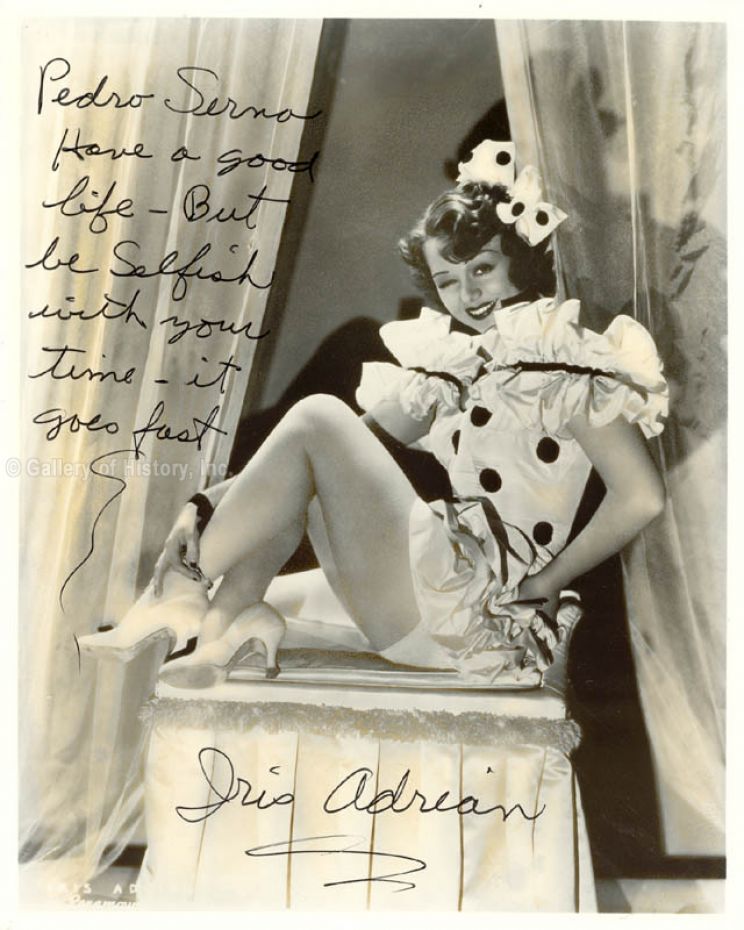 Pedro Serna
Have a good
life - But
be Selfish
with your
time - it
goes fast
© Gallery of History, Inc.
Iris Adrian
IRIS ADRIAN
Paramount